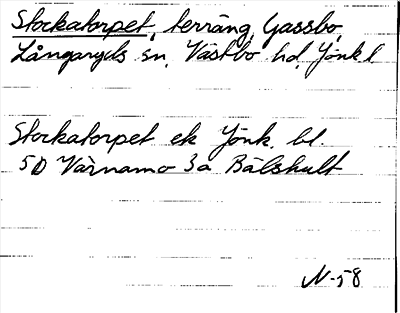 Stockatorpet, terräng, Gassbo,
Långaryds sn, Västbo hd, Jönk l
Stockatorpet ek Jönk. bl.
5D Värnamo 3a Bälshult
N-58